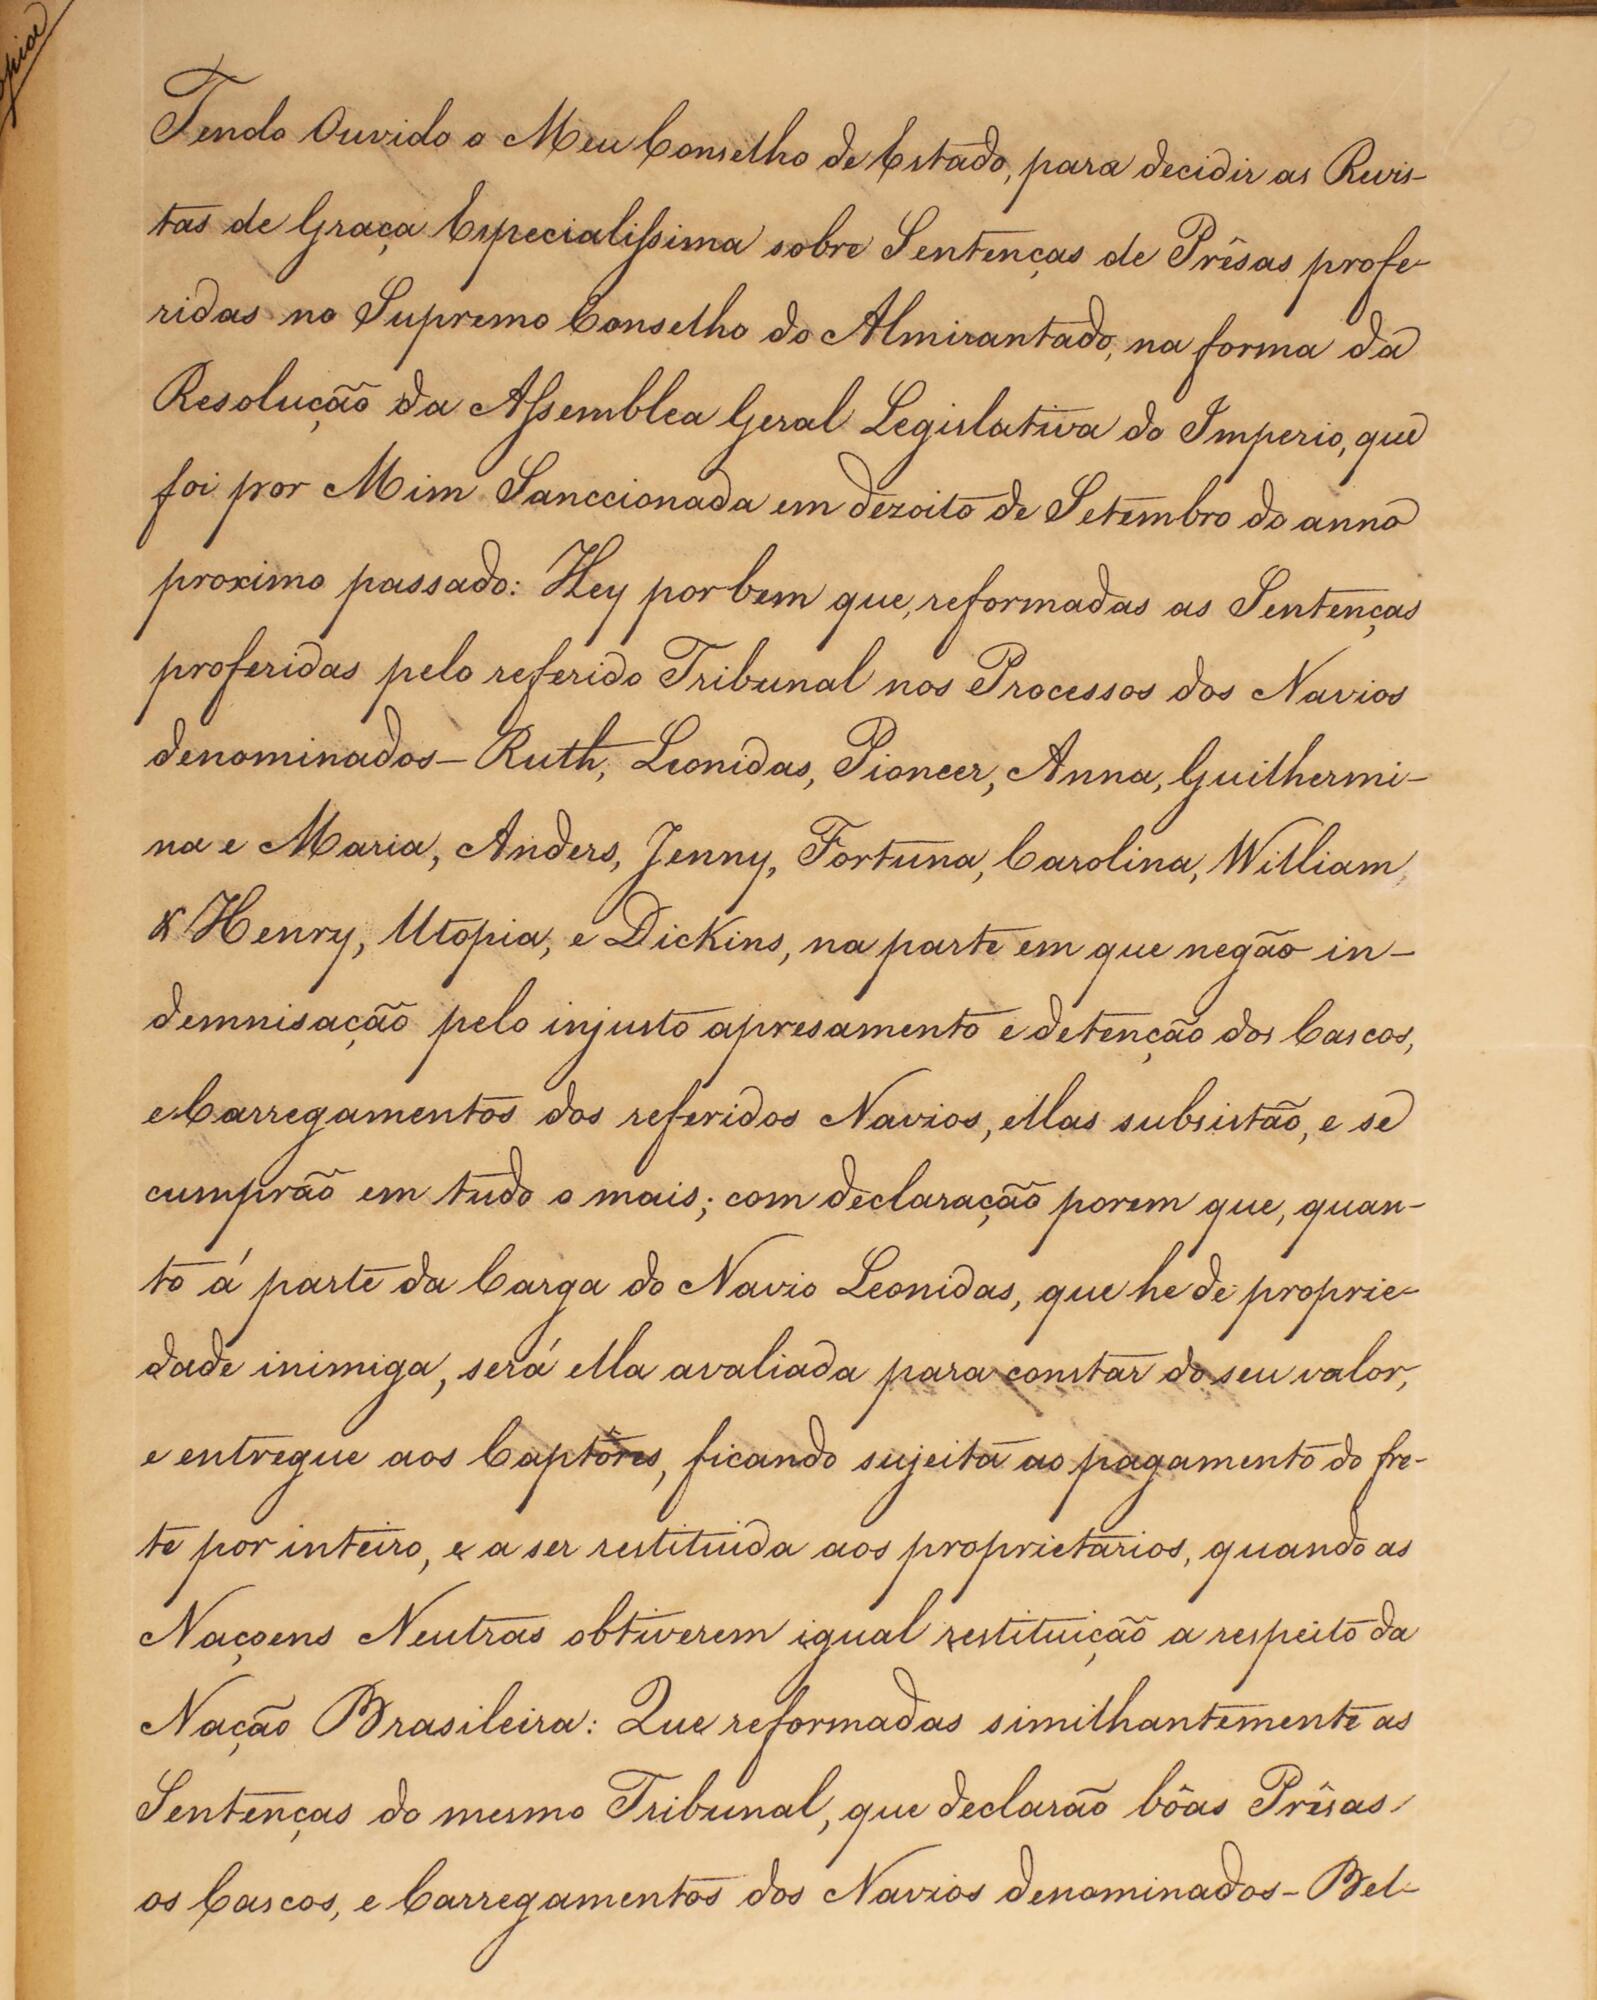 Tendo Ouvido o Meu Conselho de Estado, para decidir as Revis-
tas de Graça Especialissima sobre Sentenças de Prêsas profe-
ridas no Supremo Conselho do Almirantado, na forma da
Resolução da Assemblea Geral Legislativa do Imperio, que
foi por Mim Sanccionada em dezoito de Setembro do anno
proximo passado: Hey por bem que, reformadas as Sentenças
proferidas pelo referido Tribunal nos Processos dos Navios
denominados - Ruth, Leonidas, Pioneer, Anna, Guilhermi-
na e Maria, Anders, Jenny, Fortuna, Carolina, William
& Henry, Utopia, e Dickins, na parte em que negão in-
demnisação pelo injusto apresamento e detenção dos Cascos,
e Carregamentos dos referidos Navios, ellas subsistão, e se
cumprão em tudo o mais; com declaração porem que, quan-
to á parte da Carga do Navio Leonidas, que he de proprie-
dade inimiga, será ella avaliada para constar do seu valor,
e entregue aos Captôres, ficando sujeita ao pagamento do fre-
te por inteiro, e a ser restituida aos proprietarios, quando as
Naçoens Neutras obtiverem igual restituição a respeito da
Nação Brasileira: Que reformadas similhantemente as
Sentenças do mesmo Tribunal, que declarão bôas Prêsas
os Cascos, e Carregamentos dos Navios denominados - Bel-